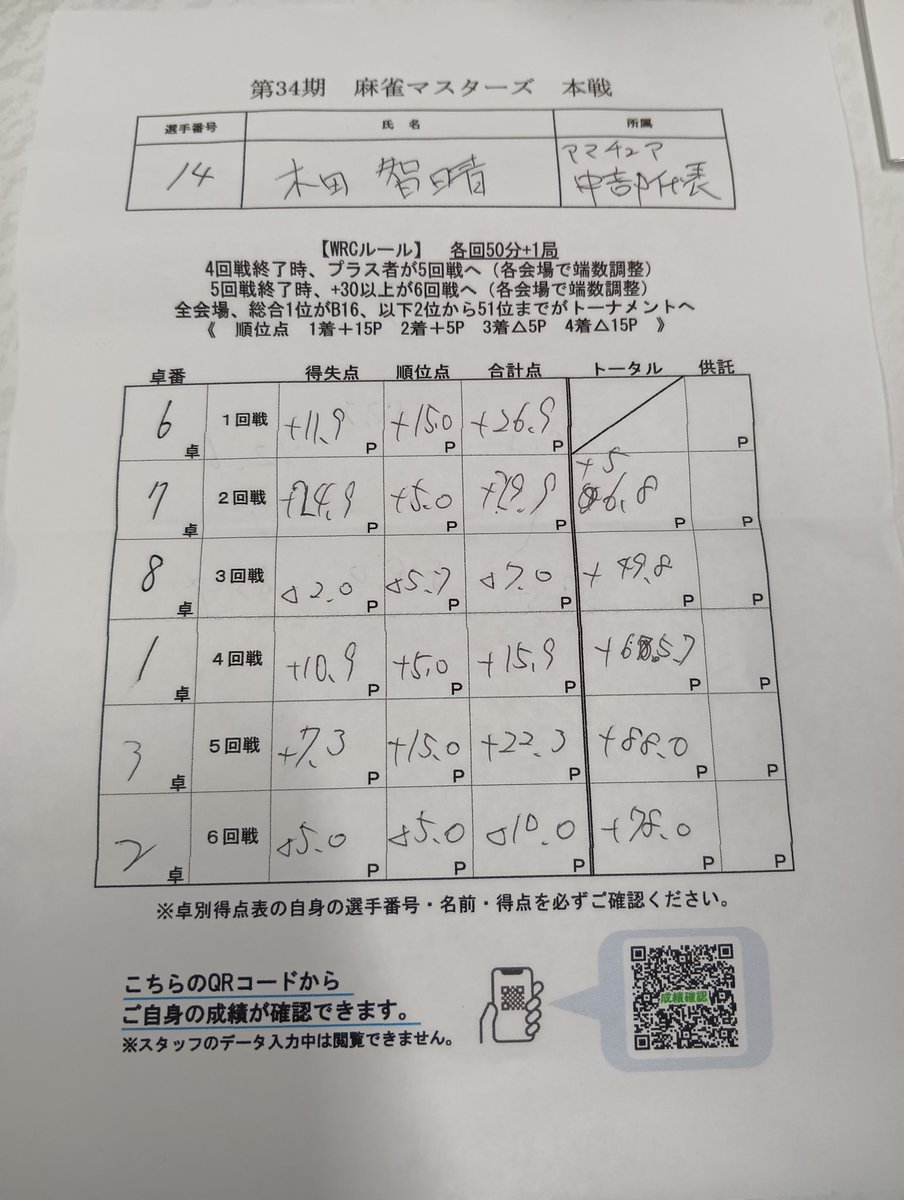 第34期 麻雀マスターズ 本戦
選手番号 氏名 所属
14 木田 智晴 アマチュア
中部代表
【WRCルール】 各回50分+1局
4回戦終了時、プラス者が5回戦へ（各会場で端数調整）
5回戦終了時、+30以上が6回戦へ（各会場で端数調整）
全会場、総合1位がB16、以下2位から51位までがトーナメントへ
《 順位点 1着＋15P 2着＋5P 3着△5P 4着△15P 》
卓番 得失点 順位点 合計点 トータル 供託
6卓 1回戦 +11.9P +15.0P +26.9P P
7卓 2回戦 +24.9P +5.0P +29.9P +56.8P P
8卓 3回戦 △2.0P P △7.0P +49.8P P
1卓 4回戦 +10.9P +5.0P +15.9P +65.7P P
3卓 5回戦 +7.3P +15.0P +22.3P +88.0P P
2卓 6回戦 △5.0P △5.0P △10.0P +78.0P P
※卓別得点表の自身の選手番号・名前・得点を必ずご確認ください。
こちらのQRコードから
ご自身の成績が確認できます。
※スタッフのデータ入力中は閲覧できません。
成績確認